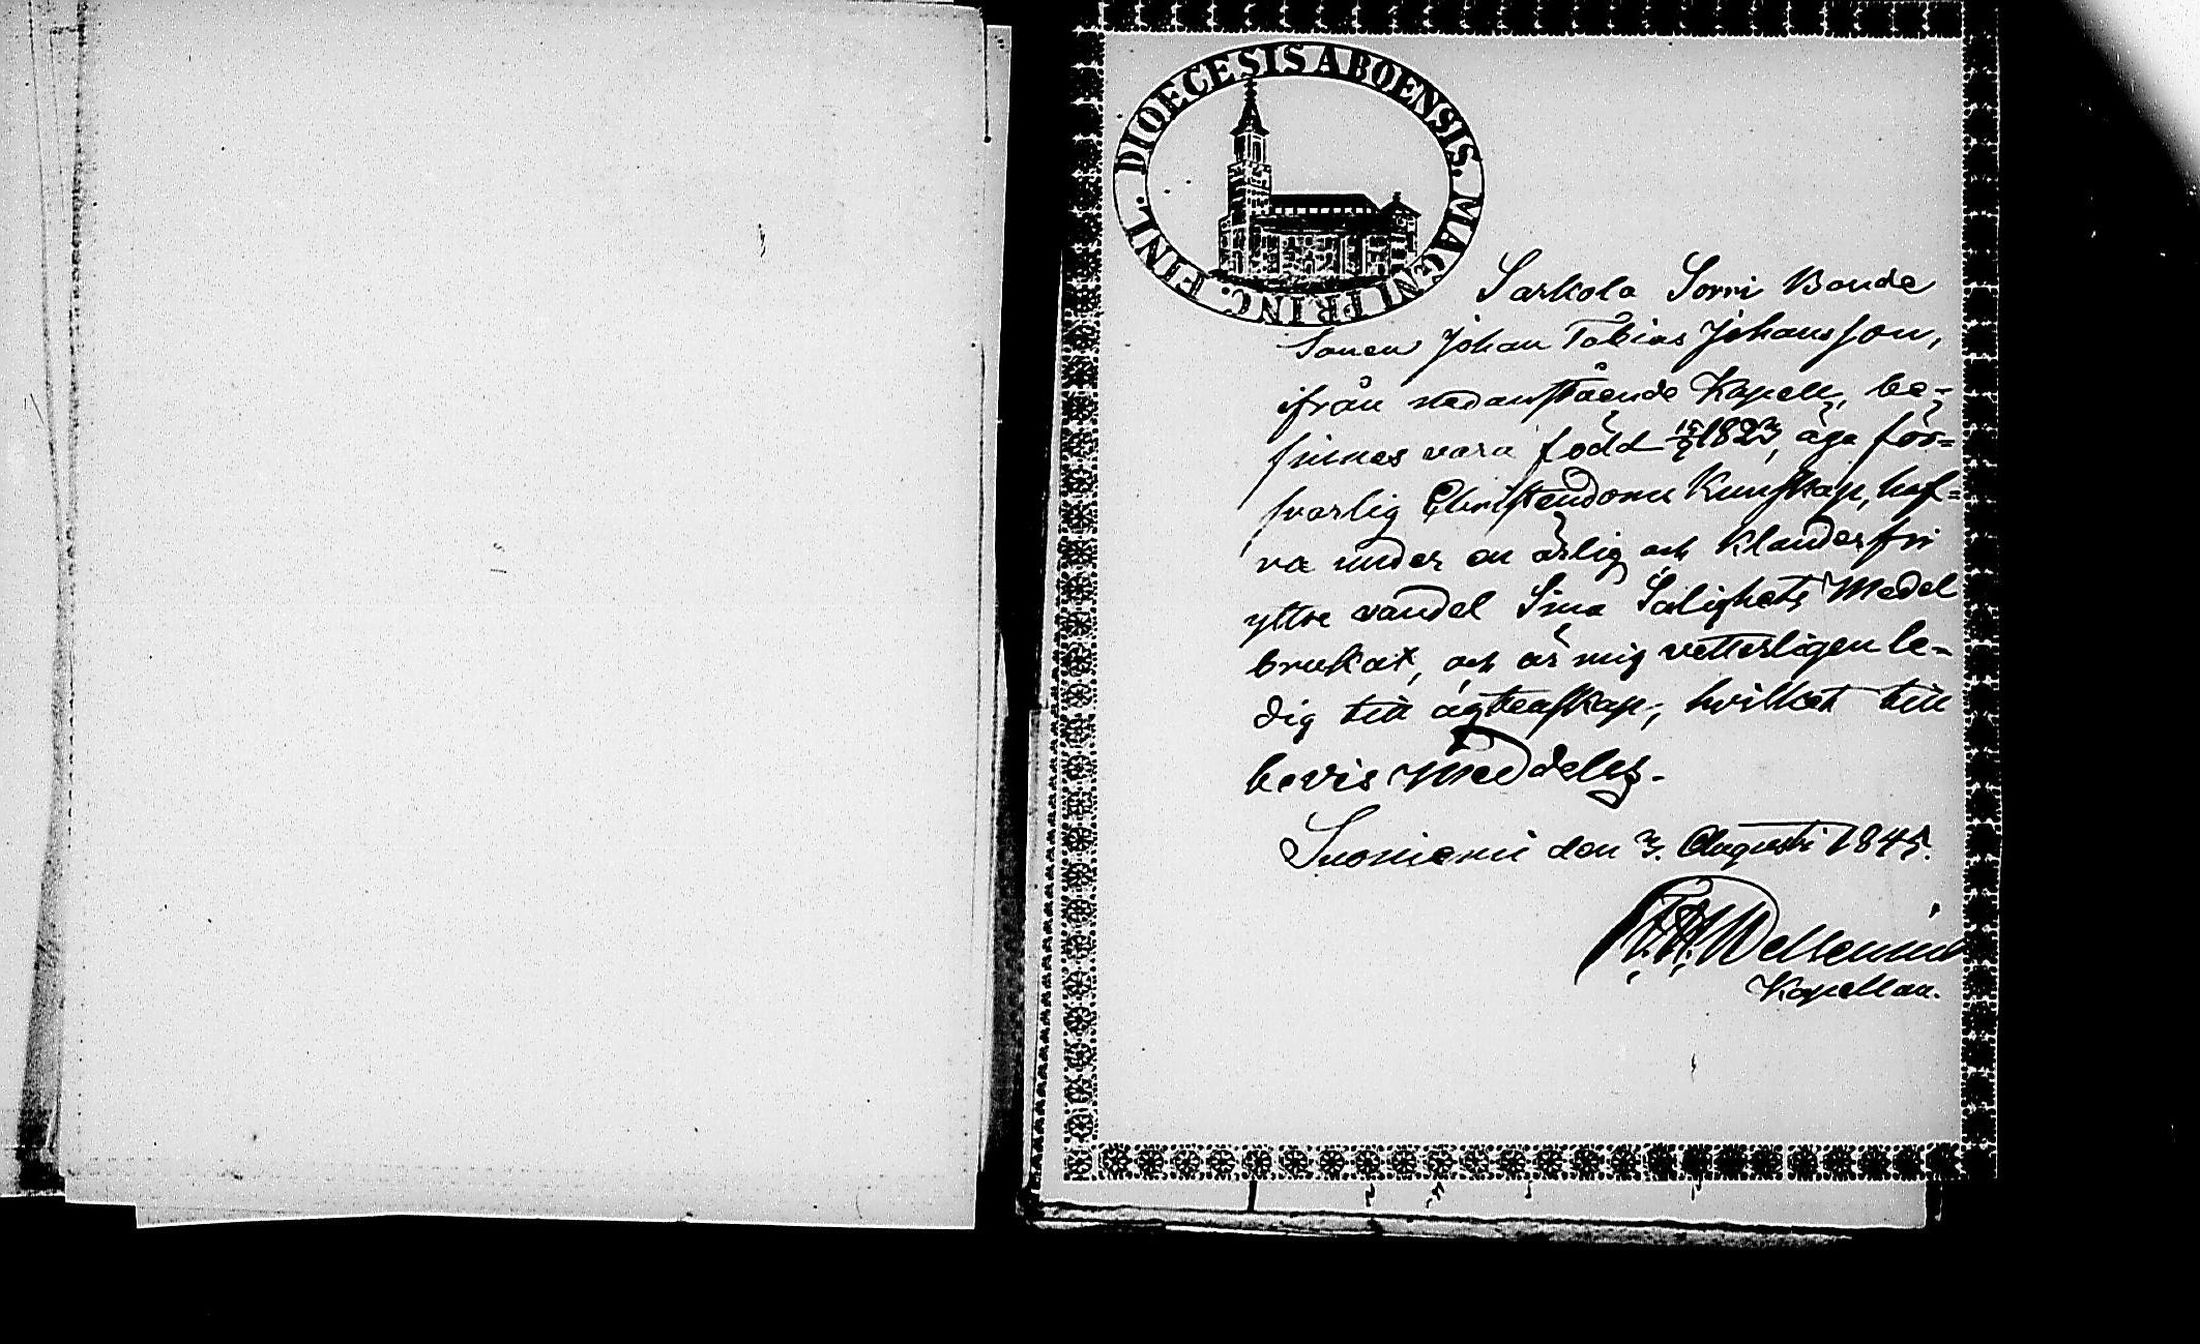 DIOECESIS ABOENSIS. MAGNI PRINC. FINL.
Sarkola Sorri Bonde
Sonen Johan Tobias Johansson,
ifrån nedanstående Kapell, be-
finnes vara född 1823, äga för=
svarlig Christendoms Kunskap, haf=
va under en ärlig och klanderfri
yttre vandel Sina Salighets Medel
brukat, och är mig vetterligen le-
dig till ägtenskap; hvilket till
bevis Meddelas.
Suoniemi den 3. Augusti 1845.
Kapellan.